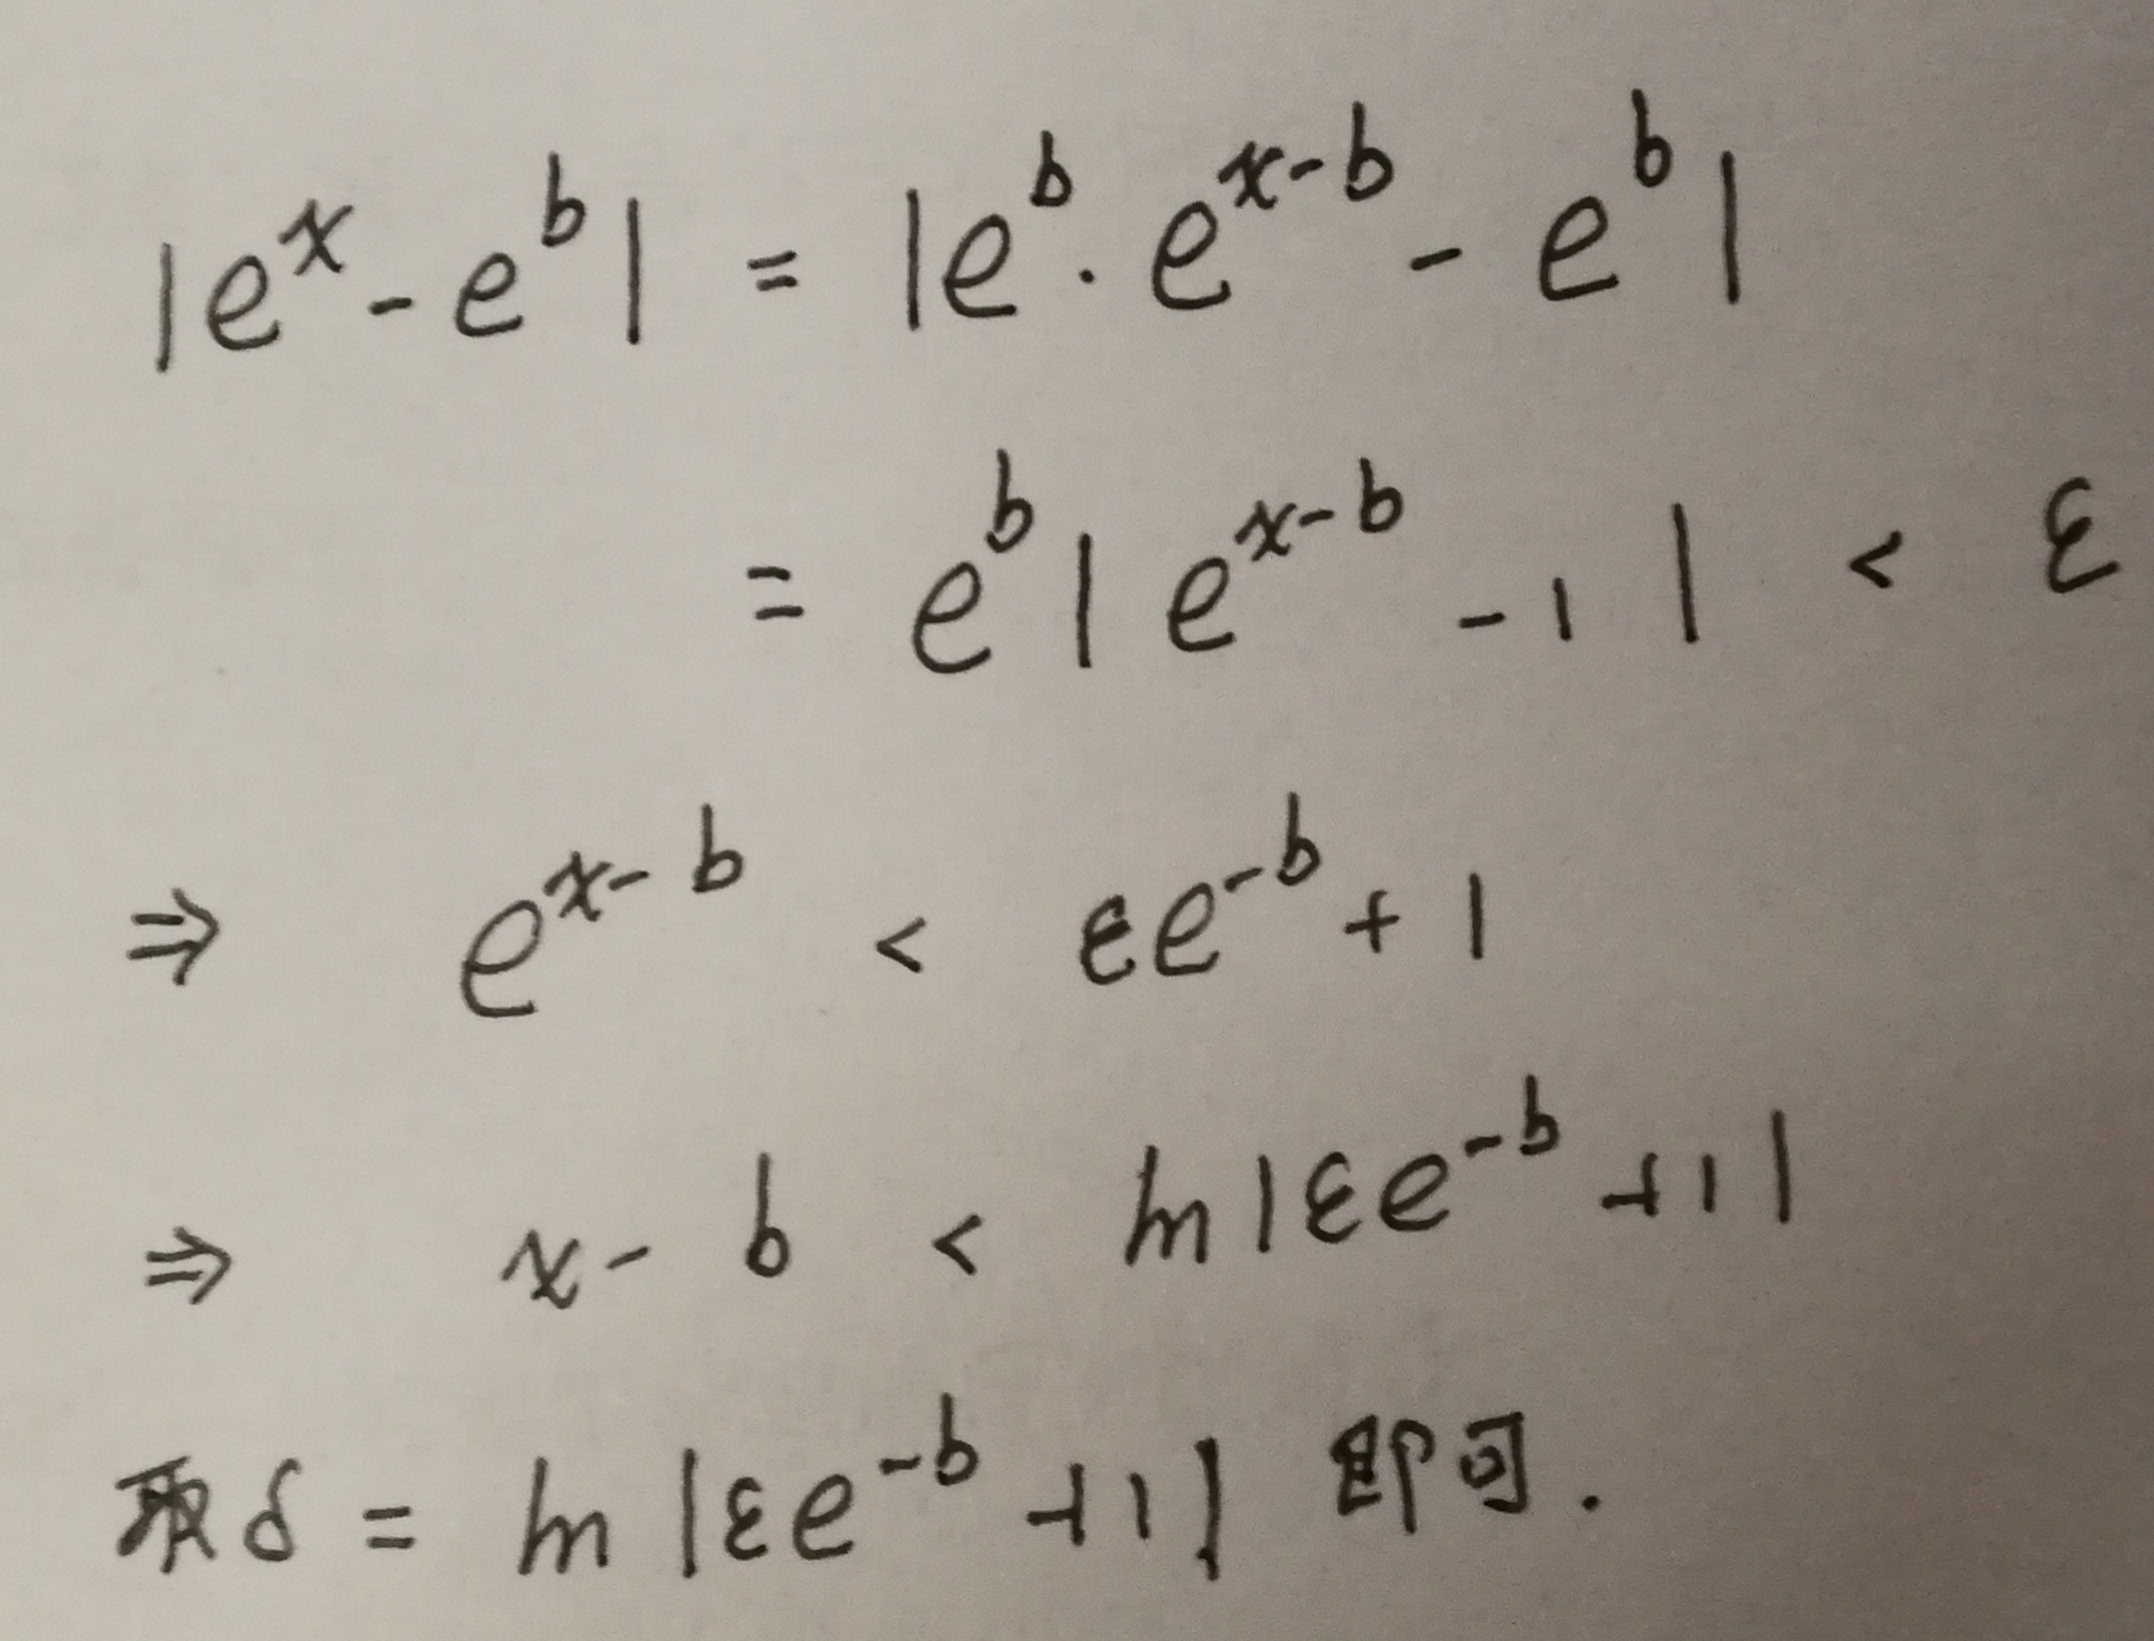 |e^x - e^b| = |e^b · e^{x-b} - e^b|
= e^b | e^{x-b} - 1 | < ε
⇒ e^{x-b} < εe^{-b} + 1
⇒ x - b < ln |εe^{-b} + 1|
取δ = ln |εe^{-b} + 1| 即可.